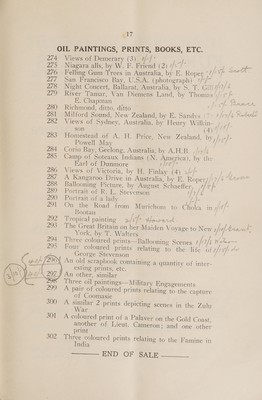 17
OIL PAINTINGS, PRINTS, BOOKS, ETC.
274 Views of Demerary (3)
275 Niagara alls, by W. F. Friend (2)
276 Felling Gum Trees in Australia, by E. Roper
277 San Francisco Bay, U.S.A. (photograph)
278 Night Concert, Ballarat, Australia, by S. T. Gill
279 River Tamar, Van Diemens Land, by Thomas
E. Chapman
280 Richmond, ditto, ditto
281 Milford Sound, New Zealand, by E. Sandys
282 Views of Sydney, Australia, by Henry Wilkin-
son (4)
283 Homestead of A. H. Price, New Zealand, by
Powell May
284 Corio Bay, Geelong, Australia, by A.H.B.
285 Camp of Soteaux Indians (N. America), by the
Earl of Dunmore
286 Views of Victoria, by H. Finlay (4)
287 A Kangaroo Drive in Australia, by E. Roper
288 Ballooning Picture, by August Schaeffer
289 Portrait of R. L. Stevenson
290 Portrait of a lady
291 On the Road from Murichom to Choka in
Bootan
292 Tropical painting
293 The Great Britain on her Maiden Voyage to New
York, by T. Walters
294 Three coloured prints—Ballooning Scenes
295 Four coloured prints relating to the life of
George Stevenson
296 An old scrapbook containing a quantity of inter-
esting prints, etc.
297 An other, similar
298 Three oil paintings—Military Engagements
299 A pair of coloured prints relating to the capture
of Coomasie
300 A similar 2 prints depicting scenes in the Zulu
War
301 A coloured print of a Palaver on the Gold Coast,
another of Lieut. Cameron; and one other
print
302 Three coloured prints relating to the Famine in
India
END OF SALE